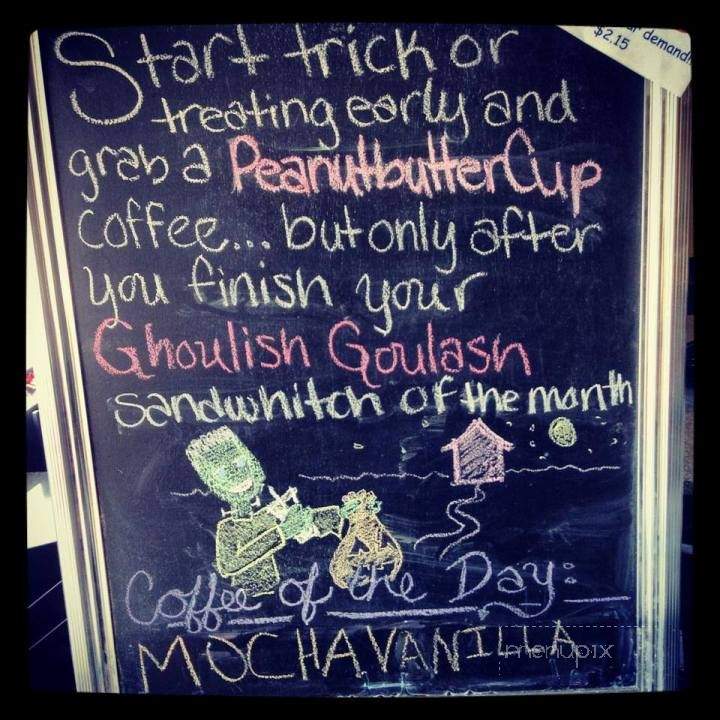 demand!
$2.15
Start trick or
treating early and
grab a PeanutbutterCup
coffee... but only after
you finish your
Ghoulish Goulash
sandwhitch of the month
Coffee of the Day:
MOCHAVANILLA
menupix